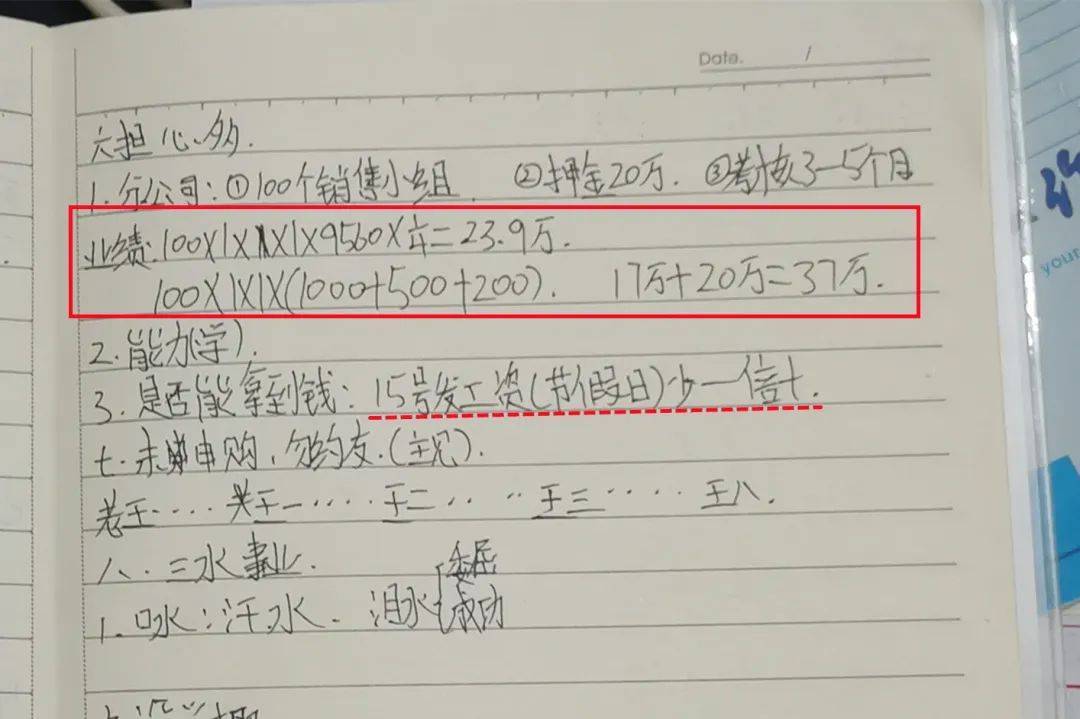 Date. /
六担心多.
1. 分公司: ①100个销售小组 ②押金20万. ③考核3—5个月
业绩: 100X1X1X1X9560X¼=23.9万.
100X1X1X(1000+500+200). 17万+20万=37万.
2. 能力(学).
3. 是否能拿到钱: 15号发工资(节假日)少一信十.
七. 未申购, 勿约友. (主见).
老王···· 王一···· 王二·· ·· 王三···· 王八.
八. 三水事业.
委屈
1. 口水: 汗水. 泪水{成功
your